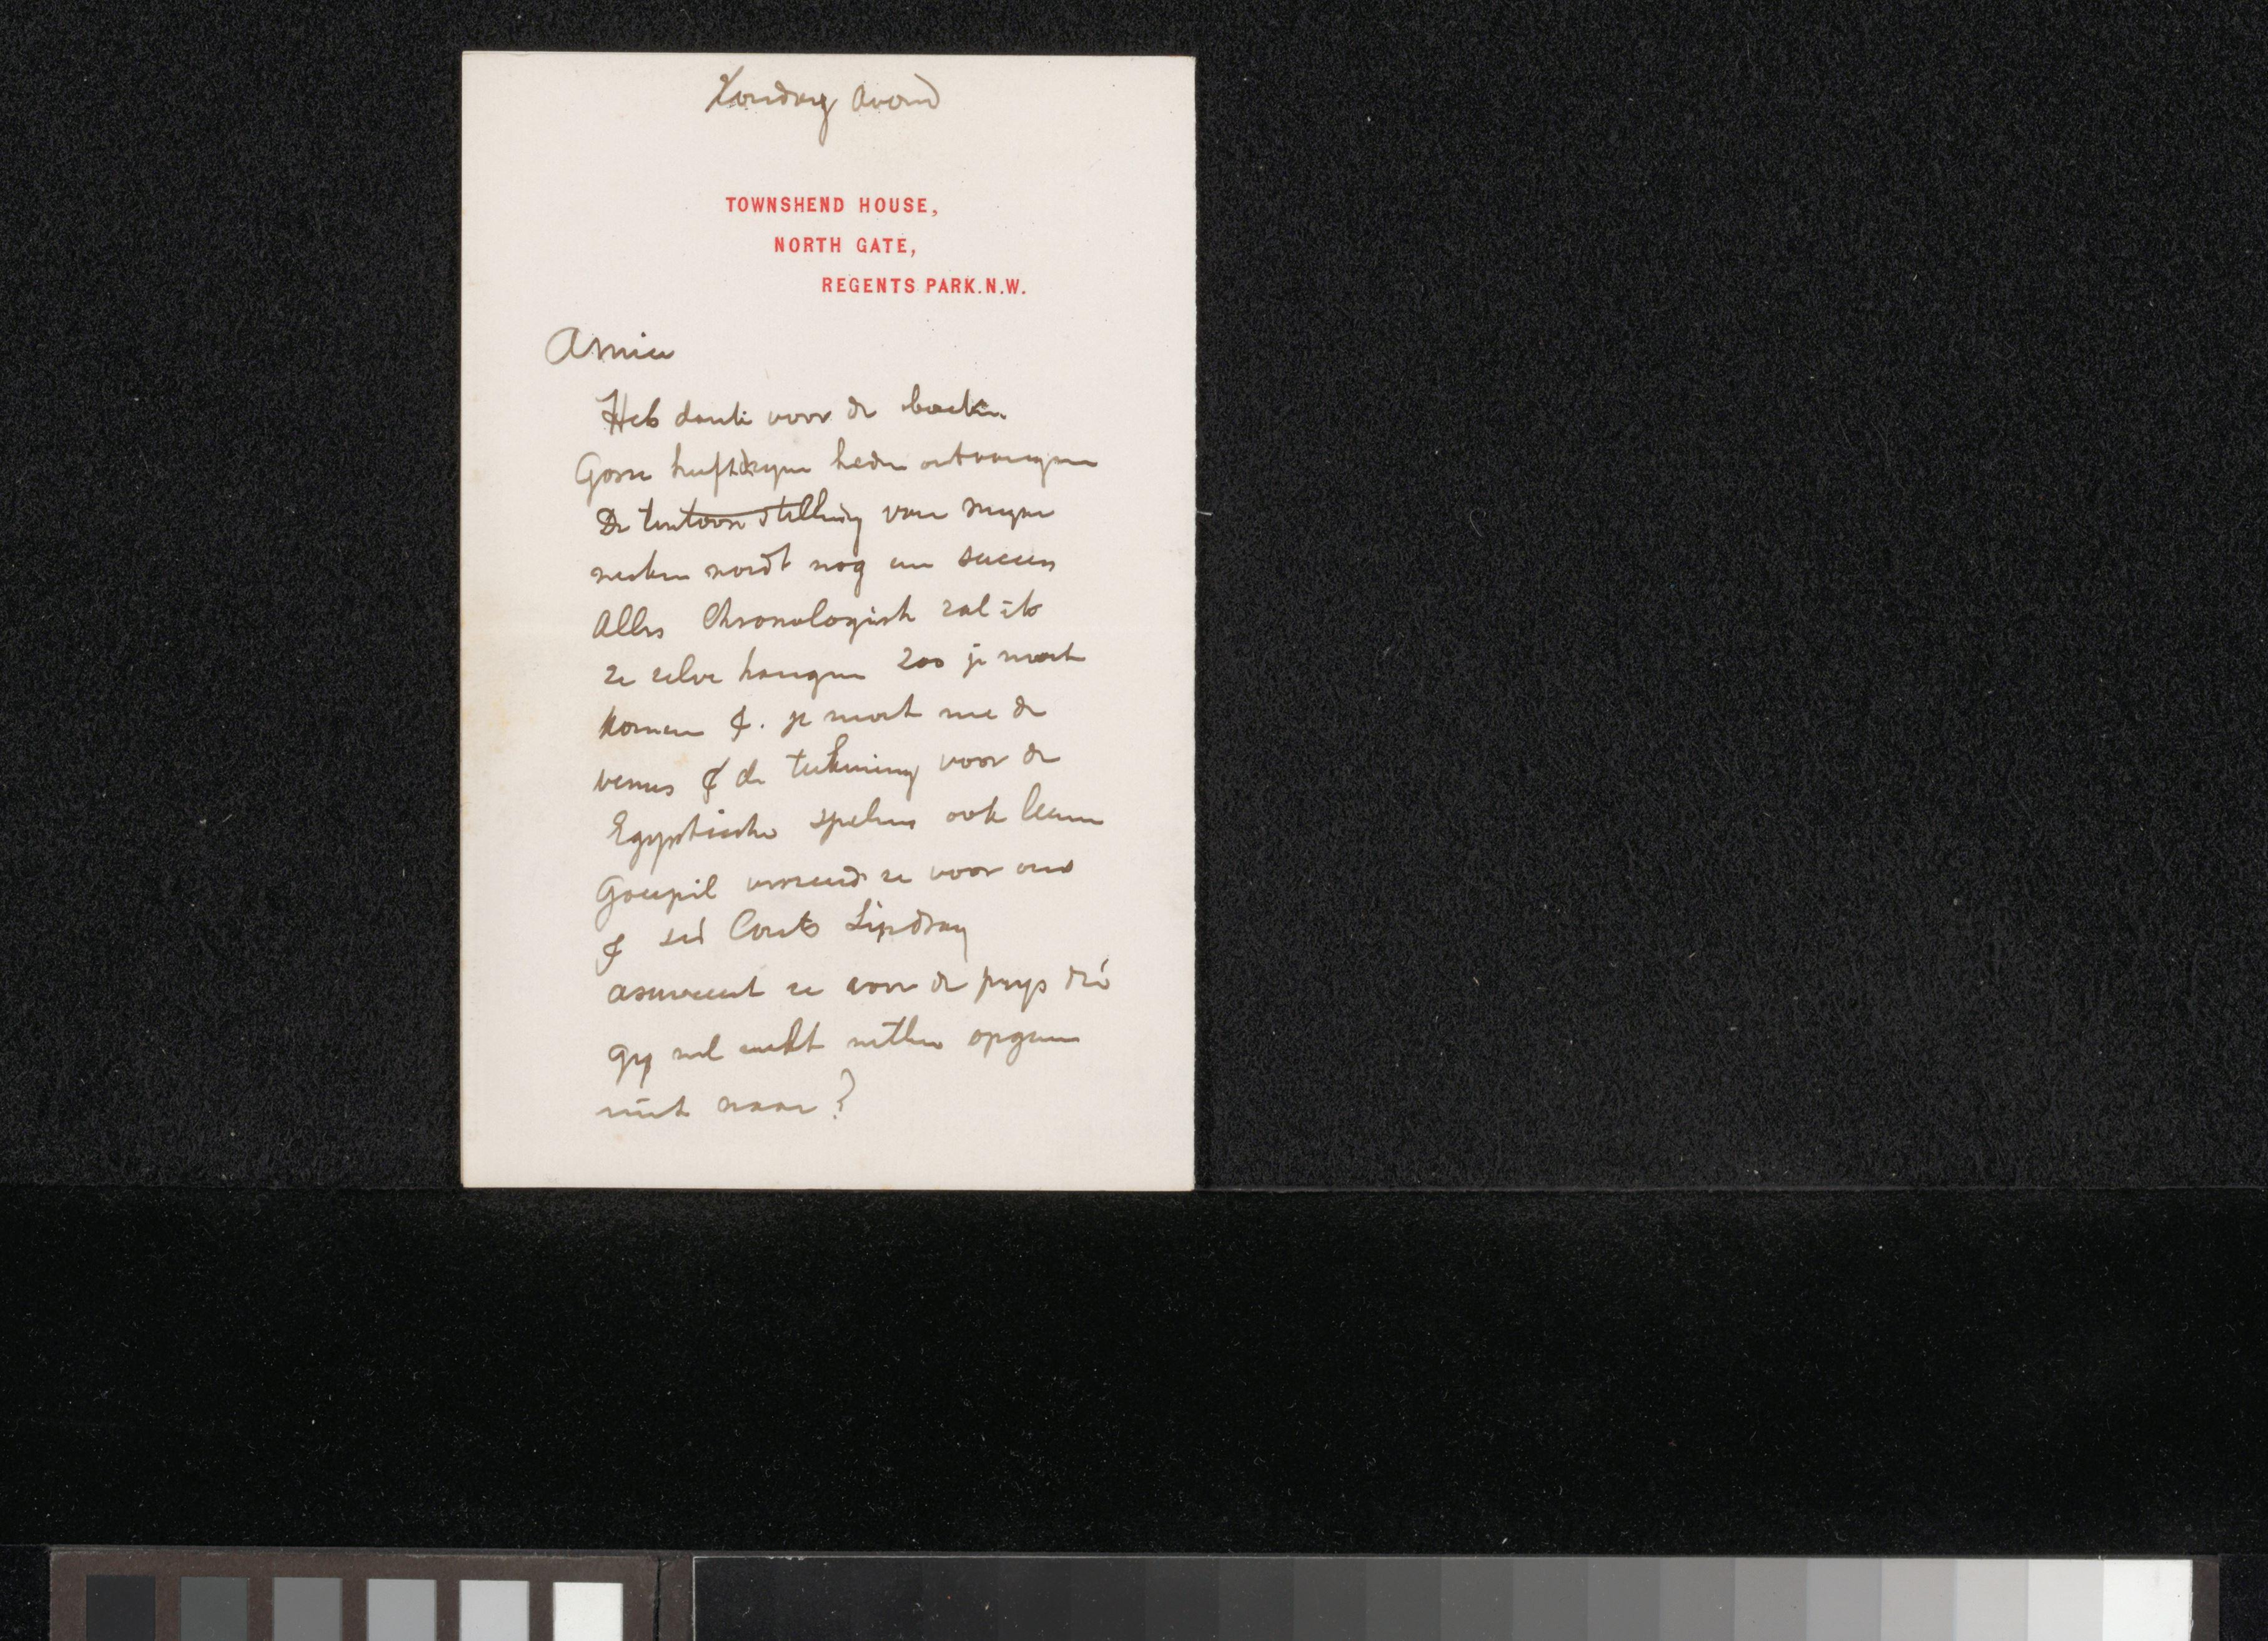 Zondag avond
TOWNSHEND HOUSE,
NORTH GATE,
REGENTS PARK.N.W.
Amice
Heb dank voor de boeken
Gosse heeft zyne heden ontvangen
De tentoonstelling van myne
werken wordt nog een succes
Alles Chronologisch zal ik
ze zelve hangen zoo je moet
komen &. je moet me de
venus & de tekening voor de
Egyptische spelers ook leenen
Goupil verzend ze voor ons
& Coutts Lindsay
assureert ze voor de prys die
gy wel zult willen opgeven
niet waar?